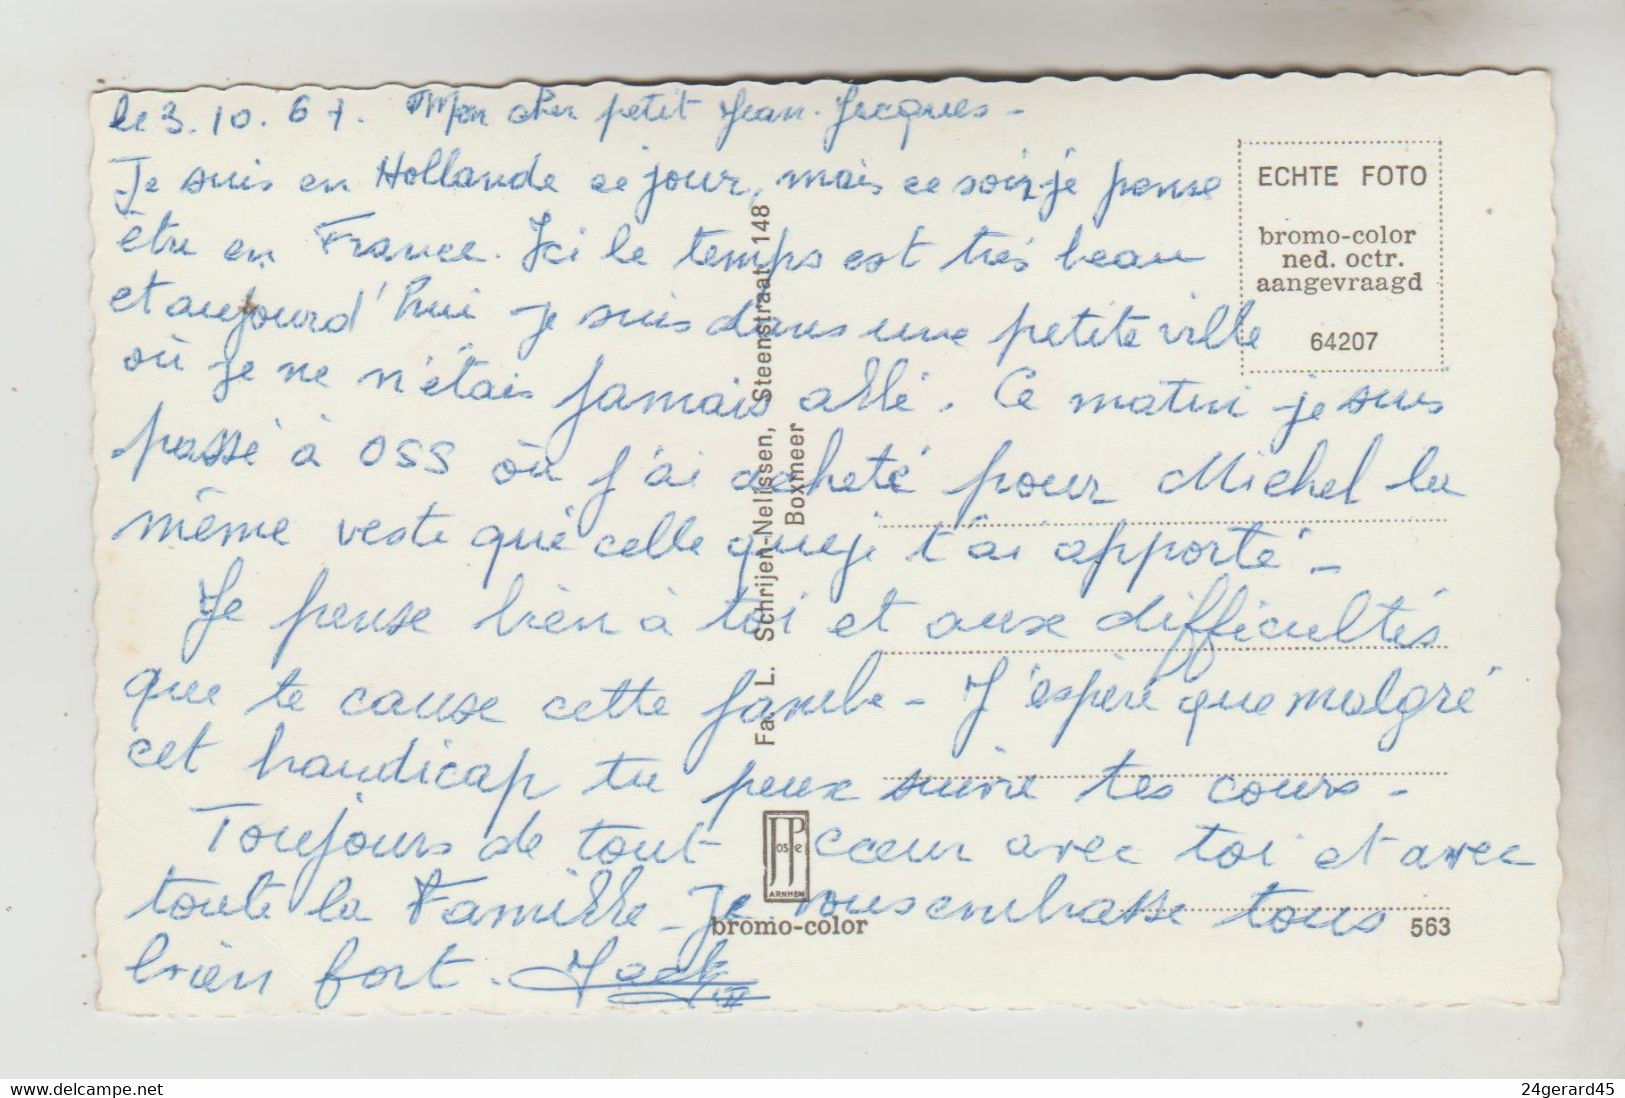 le 3.10.67. Mon cher petit Jean-Jacques -
Je suis en Hollande ce jour, mais ce soir je pense
être en France. Ici le temps est très beau
et aujourd'hui je suis dans une petite ville
où je ne n'étais jamais allé. Ce matin je suis
passé à OSS où j'ai acheté pour Michel la
même veste que celle que je t'ai apporté -
Je pense bien à toi et aux difficultés
que te cause cette jambe - J'espère que malgré
cet handicap tu peux suivre tes cours -
Toujours de tout cœur avec toi et avec
toute la Famille - Je vous embrasse tous
bien fort. Jack
ECHTE FOTO
bromo-color
ned. octr.
aangevraagd
64207
Fa. L. Schrijen-Nelissen, Steenstraat 148
Boxmeer
JosPe
ARNHEM
bromo-color
563
24gerard45